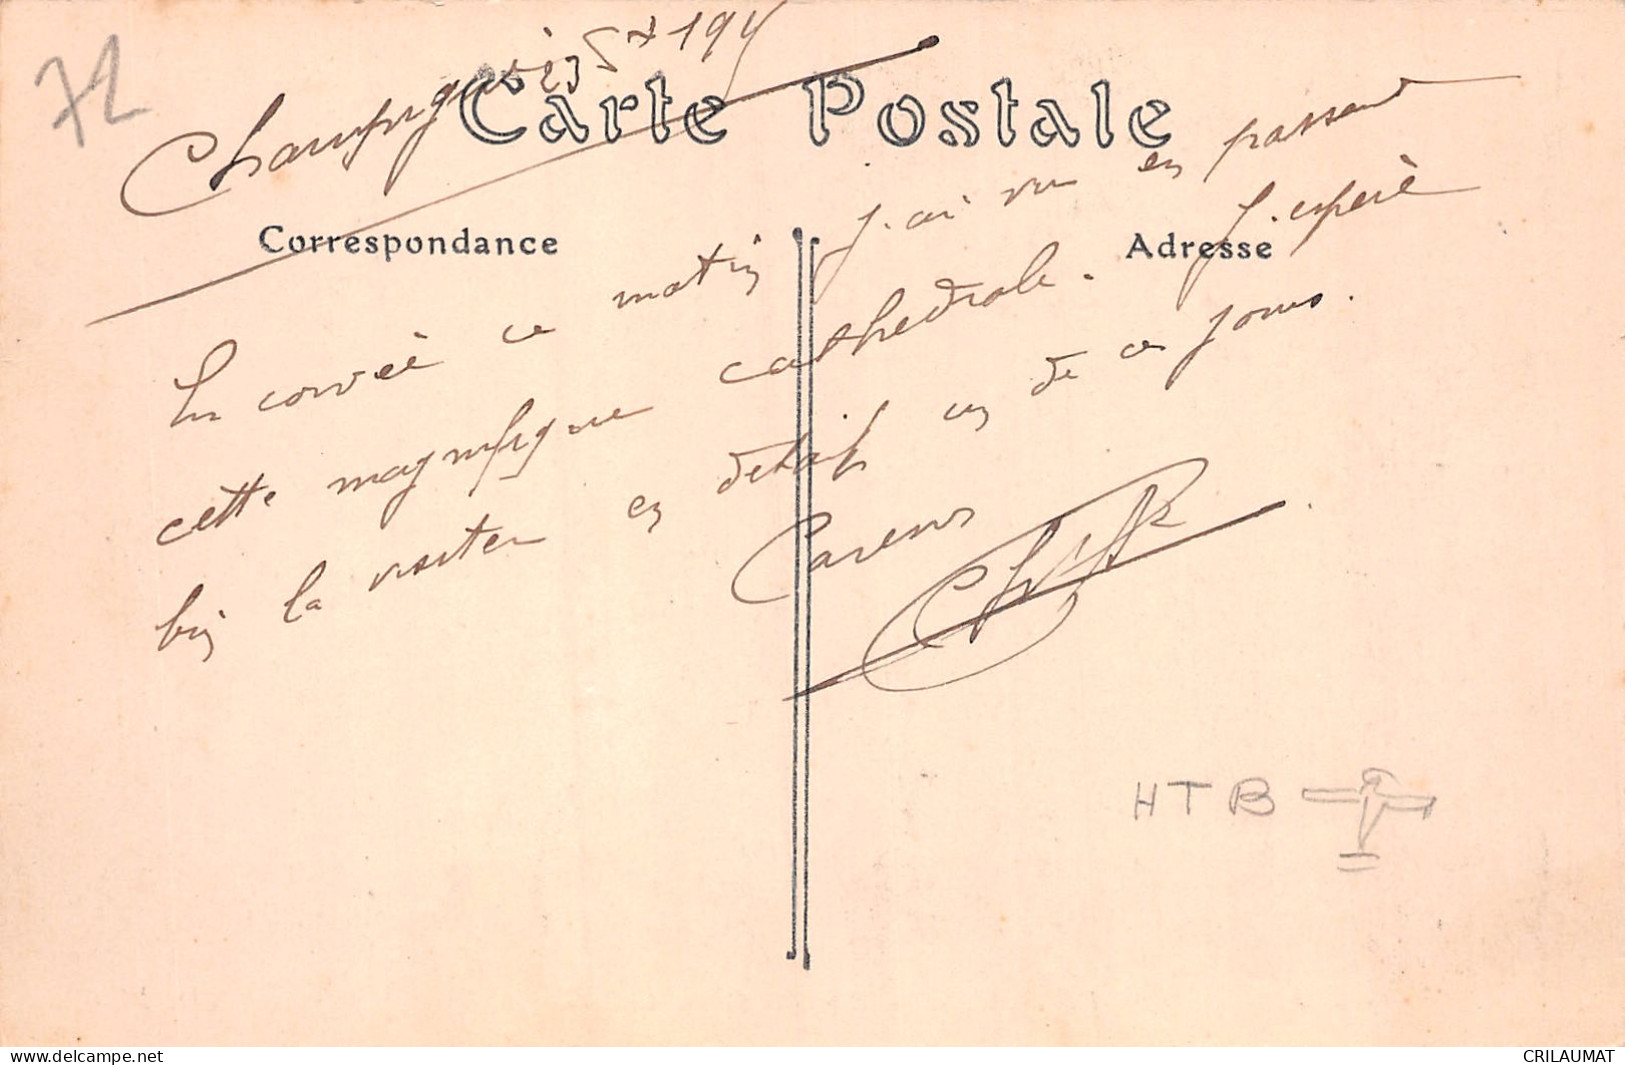 72
Champagné 5 7 194
Carte Postale
Correspondance
Adresse
En corvée ce matin j'ai vu en passant
cette magnifique cathedrale. J'espère
bien la visiter en detail un de ces jours.
HTB
www.delcampe.net
CRILAUMAT